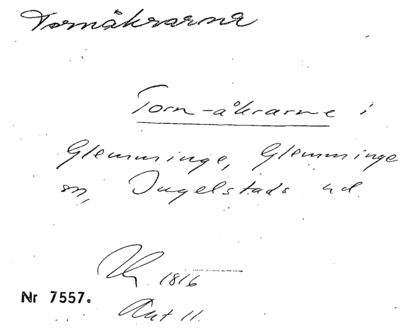 Tornåkrarna
Torn-åkrarne i
Glemminge, Glemminge
sn, Ingelstads hd.
1816
Nr 7557.
Akt 11.